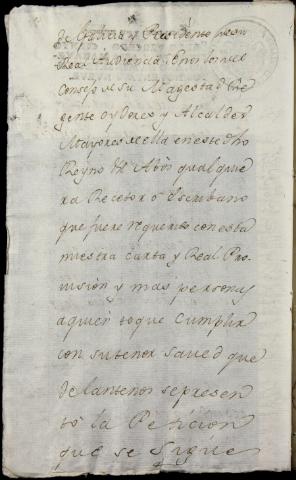 de Galicia y Presidente de su
Real Audiencia, Por los mis
Consejo de su Magestad Re
gente oydores y Alcaldes
Mayores de ella en este dho
Reyno &c A vos qualquie
ra Recetor o Escribano
que fuere requerido con esta
nuestra carta y Real Pro
vision y mas personas
a quien toque cumplir
con su tenor saved que
delante nos se presen
tó la Peticion
que se sigue